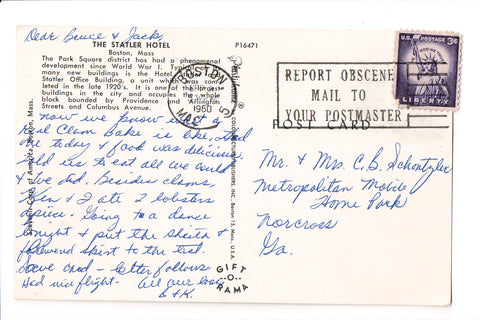 Dear Bruce & Jack,
THE STATLER HOTEL
Boston, Mass
P16471
The Park Square district has had a phenomenal
development since World War I.
many new buildings is the Hotel
Statler Office Building, a unit which was com-
leted in the late 1920's. It is one of the largest
buildings in the city and occupies the whole
block bounded by Providence and Arlington
Streets and Columbus Avenue.
now we know what a
real Clam Bake is like. Had
one today & food was delicious.
Told us to eat all we could
& we did. Besides clams,
Ken & I ate 2 lobsters
apiece. Going to a dance
tonight & put the
flowered skirt to the test.
Save card – letter follows.
Had nice flight. All our love
B & K.
of America, Boston, Mass.
Plastichrome ®
COLOURPICTURE PUBLISHERS, INC., Boston 15, Mass., U.S.A.
GIFT
-O-
RAMA
BOSTON
MASS
1960
REPORT OBSCENE
MAIL TO
YOUR POSTMASTER
U.S. POSTAGE 3¢
IN GOD WE TRUST
LIBERTY
POST CARD
Mr. & Mrs. C. B. Schontzler
Metropolitan Mobile
Home Park
Norcross
Ga.